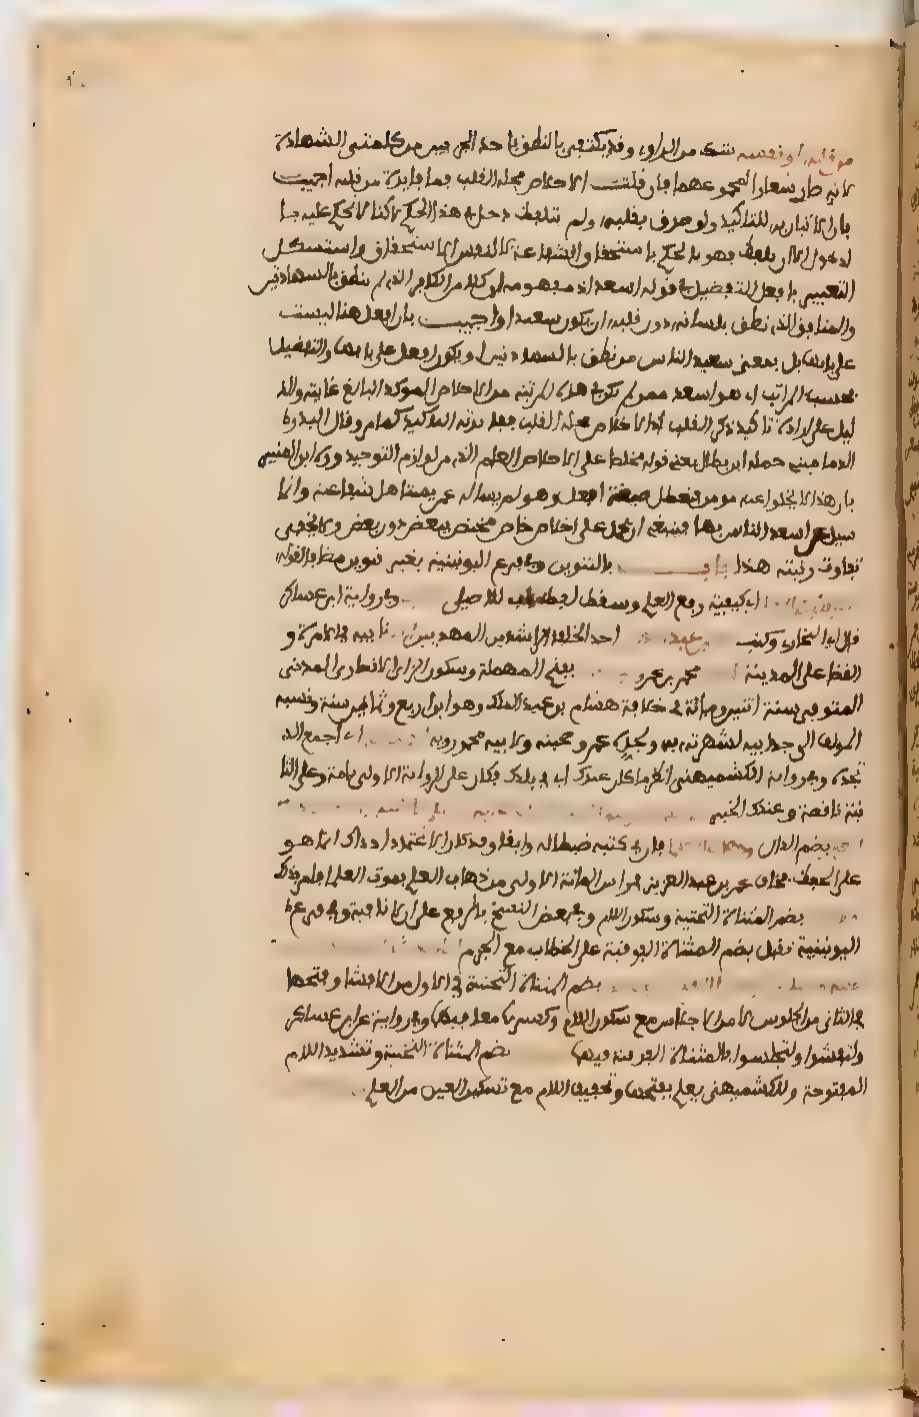 من قلبه او نفسه شك من الراوي وقد يكتفى بالنطق باحد الجزءين من كلمتي الشهادة
لانه صار شعارا لمجموعهما فان قلت الاخلاص محله القلب فما فائدة من قلبه اجيب
بان الاتيان به للتاكيد ولو صدق بقلبه ولم يتلفظ دخل في هذا الحكم لكنا لا نحكم عليه با
لدخول الا ان يتلفظ فهو للحكم باستحقاق الشفاعة لا لنفس الاستحقاق واستشكل
التعبير بافعل التفضيل في قوله اسعد اذ مفهومه ان كلا من الكافر الذي لم ينطق بالشهادتين
والمنافق الذي نطق بلسانه دون قلبه ان يكون سعيدا واجيب بان افعل هنا ليست
على بابها بل بمعنى سعيد الناس من نطق بالشهادتين او يكون افعل على بابها والتفضيل
بحسب المراتب اي هو اسعد ممن لم يكن في هذه المرتبة من الاخلاص الموكد البالغ غايته والد
ليل على ارادة تاكيد ذكر القلب اذ الاخلاص محله القلب ففائدته التاكيد كما مر وقال البدر
الدماميني حمله ابن بطال يعني قوله مخلصا على الاخلاص العام الذي من لوازم التوحيد ورده ابن المنير
بان هذا لا يخلو عنه مومن فتعطل صيغة افعل وهو لم يساله عمن يستاهل شفاعته وانما
سيل عن اسعد الناس بها فينبغي ان يحمل على اخلاص خاص مختص ببعض دون بعض ولا يخفى
تفاوت رتبته هذا باب بالتنوين وفي فرع اليونينية بغير تنوين مضافا لقوله
اي كيفية رفع العلم وسقط لفظ باب للاصيلي وفي رواية ابن عساكر
قال اي البخاري وكتب عمر بن عبد احد الخلفاء الراشدين المهديين نايبه في الامرة و
القضا على المدينة محمد بن عمرو بفتح المهملة وسكون الزاي الانصاري المدني
المتوفى سنة اثنين ومائة في خلافة هشام بن عبد الملك وهو ابن اربع وثمانين سنة ونسبه
المولف الى جد ابيه لشهرته به ولجده عمرو صحبة ولابيه محمد روية اي اجمع الذي
تجده وفي رواية الكشميهني انظر ما كان عندك اي في بلدك فكان على الرواية الاولى تامة وعلى الثا
نية ناقصة وعندك الخبر
بضم الدال فان في كتبه ضبطا له وابقا وقد كان الاعتماد اذ ذاك انما هو
على الحفظ فخاف عمر بن عبد العزيز في راس المائة الاولى من ذهاب العلم بموت العلما فامر بذلك
بضم المثناة التحتية وسكون اللام وفي بعض النسخ بالرفع على ان لا نافية وفي فرع
اليونينية تقبل بضم المثناة الفوقية على الخطاب مع الجزم
بضم المثناة التحتية في الاول من الافشا وفتحها
في الثاني من الجلوس لا من الاجلاس مع سكون اللام وكسرها معا فيهما وفي رواية عن ابن عساكر
ولتفشوا ولتجلسوا بالمثناة الفوقية فيهما بضم المثناة التحتية وتشديد اللام
المفتوحة وللكشميهني يعلم بفتحها وتخفيف اللام مع تسكين العين من العلم